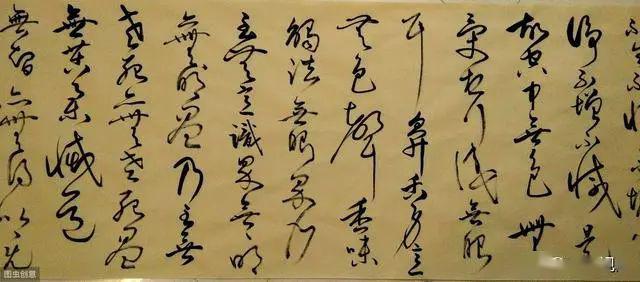 不生不滅不垢不
淨不增不減是
故空中無色無
受想行識無眼
耳鼻舌身意
無色聲香味
觸法無眼界乃
至無意識界無無明
亦無無明盡乃至無
老死亦無老死盡
無苦集滅道
無智亦無得以無
图虫创意